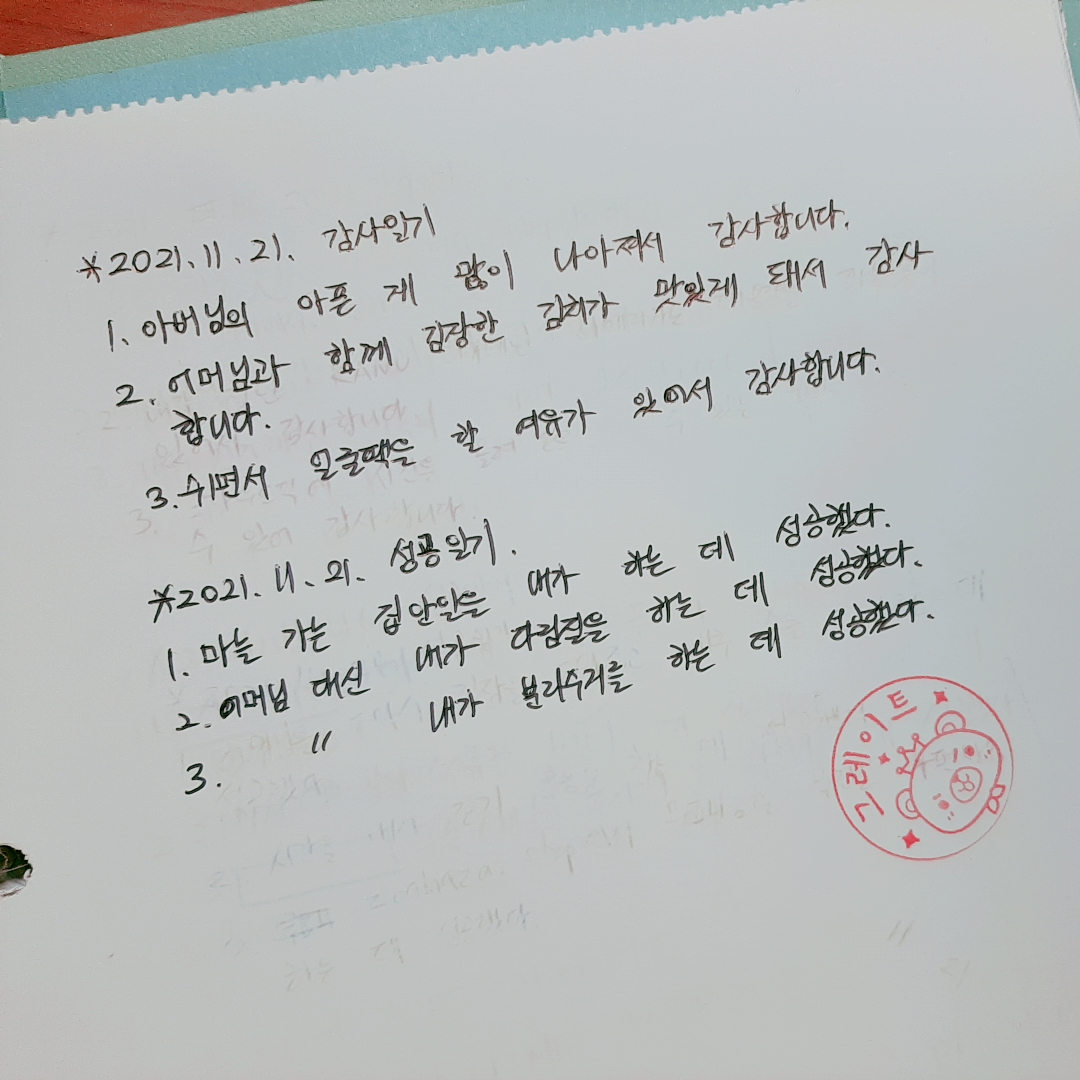 *2021.11.21. 감사일기
1. 아버님의 아픈 게 많이 나아져서 감사합니다.
2. 어머님과 함께 김장한 김치가 맛있게 돼서 감사
합니다.
3. 쉬면서 얼굴팩을 할 여유가 있어서 감사합니다.
*2021.11.21. 성공일기.
1. 마늘 가는 집안일을 내가 하는 데 성공했다.
2. 어머님 대신 내가 다림질을 하는 데 성공했다.
3. 〃 내가 분리수거를 하는 데 성공했다.
그레이트